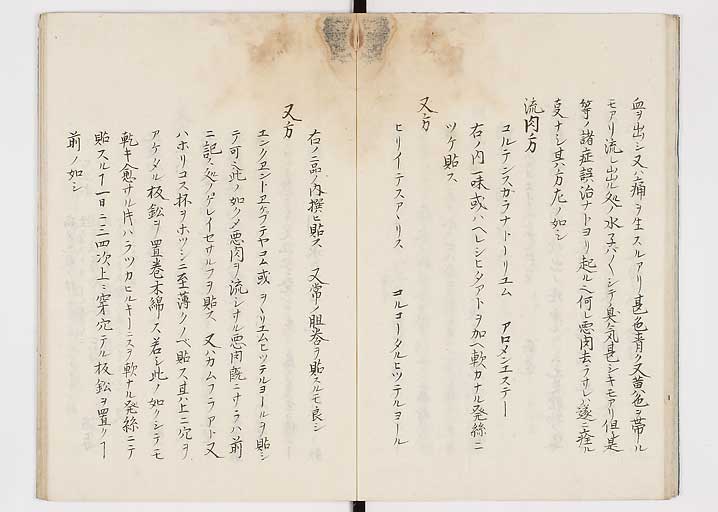 血ヲ出シ又ハ痛ヲ生スルアリ其色青ク又黄色ヲ帯ル
モアリ流レ出ル処ノ水子ハクシテ臭気甚シキモアリ但是
等ノ諸症誤治ナトヨリ起ル何レ悪肉去ラサレハ遂ニ痊ル
ナシ其方左ノ如シ
流肉方
コルテンスガラナトーリユム アロメンエステー
右ノ内一味或ハヘレシヒタアトヲ加ヘ軟カナル発絲ニ
ツケ貼ス
又方
ヒリイテスアヽリス コルコータルヒツテルヨール
右ノ二品ノ内撰ヒ貼ス 又常ノ膽巻ヲ貼スルモ良シ
又方
エンクエントエケフテヤコム或ヲヽリユムヒツテルヨールヲ貼シ
テ可ヘ此ノ如クメ悪肉ヲ流シサル悪肉既ニサラハ前
ニ記ス処ノゲレイセサルフヲ貼ス 又ハカムフラアト又
ハホリコス杯ヲホツシニ至薄クノヘ貼ス其上ニ穴ヲ
アケタル板鈆ヲ置巻木綿ス若シ此ノ如クシテモ
乾キ愈サル片ハラツカヒルキーニスヲ軟ナル発絲ニテ
貼スル一日ニ三四次上ニ穿穴テル板鈆ヲ置ク
前ノ如シ